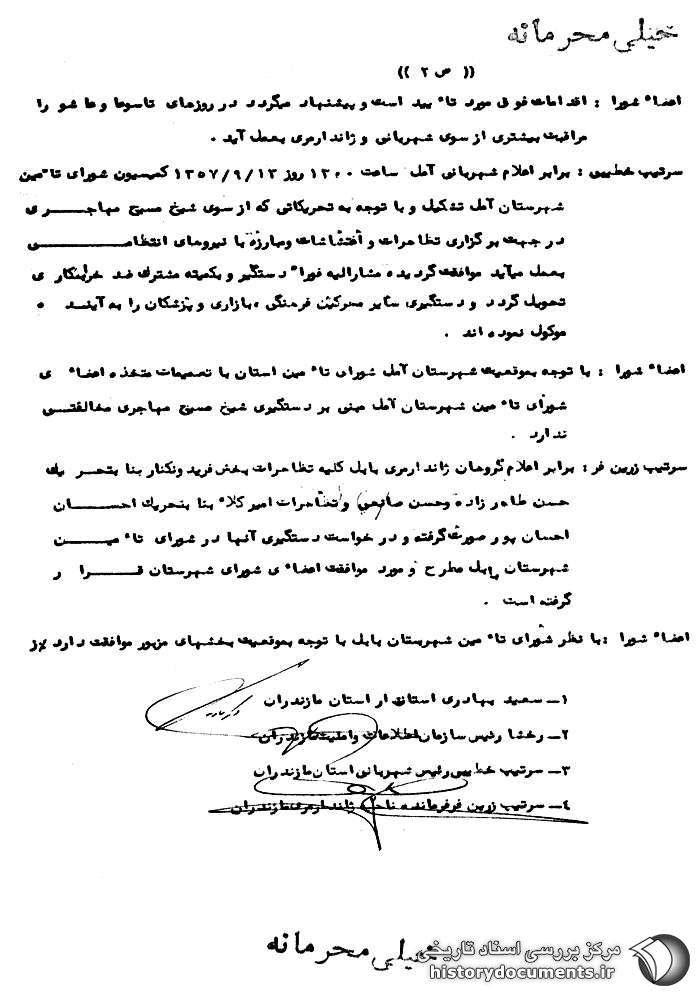 خیلی محرمانه
(( ص ۲ ))
اعضاء شورا : اقدامات فوق مورد تائید است و پیشنهاد میگردد در روزهای تاسوعا و عاشورا
مراقبت بیشتری از سوی شهربانی و ژاندارمری بعمل آید .
سرتیپ خطیبی : برابر اعلام شهربانی آمل ساعت ۱۳۰۰ روز ۱۳۵۷/۹/۱۳ کمیسیون شورای تامین
شهرستان آمل تشکیل و با توجه به تحریکاتی که از سوی شیخ مسیح مهاجری
در جهت برگزاری تظاهرات و اغتشاشات ومبارزه با نیروهای انتظامی
بعمل میآید موافقت گردیده مشارالیه فورا" دستگیر و بکمیته مشترک ضد خرابکاری
تحویل گردد و دستگیری سایر محرکین فرهنگی ، بازاری و پزشکان را به آینده
موکول نموده اند .
اعضاء شورا : با توجه بموقعیت شهرستان آمل شورای تاء مین استان با تصمیمات متخذه اعضاء ی
شورای تاء مین شهرستان آمل مبنی بر دستگیری شیخ مسیح مهاجری مخالفتی
ندارد .
سرتیپ زرین فر : برابر اعلام گروهان ژاندارمری بابل کلیه تظاهرات بخش فریدونکنار بنا بتحریک
حسن طاهر زاده وحسن صانعی و تظاهرات امیرکلاء بنا بتحریک احسان
احسان پور صورت گرفته و درخواست دستگیری آنها در شورای تاء مین
شهرستان بابل مطرح و مورد موافقت اعضاء ی شورای شهرستان قرار
گرفته است .
اعضاء شورا : با نظر شورای تاء مین شهرستان بابل با توجه بموقعیت بخشهای مزبور موافقت دارد
۱ــ سعید بهادری استاندار استان مازندران
۲ــ رخشا رئیس سازمان اطلاعات وامنیت مازندران
۳ــ سرتیپ خطیبی رئیس شهربانی استان مازندران
۴ــ سرتیپ زرین فر فرمانده ناحیه ژاندارمری مازندران
خیلی محرمانه
مرکز بررسی اسناد تاریخی
historydocuments.ir